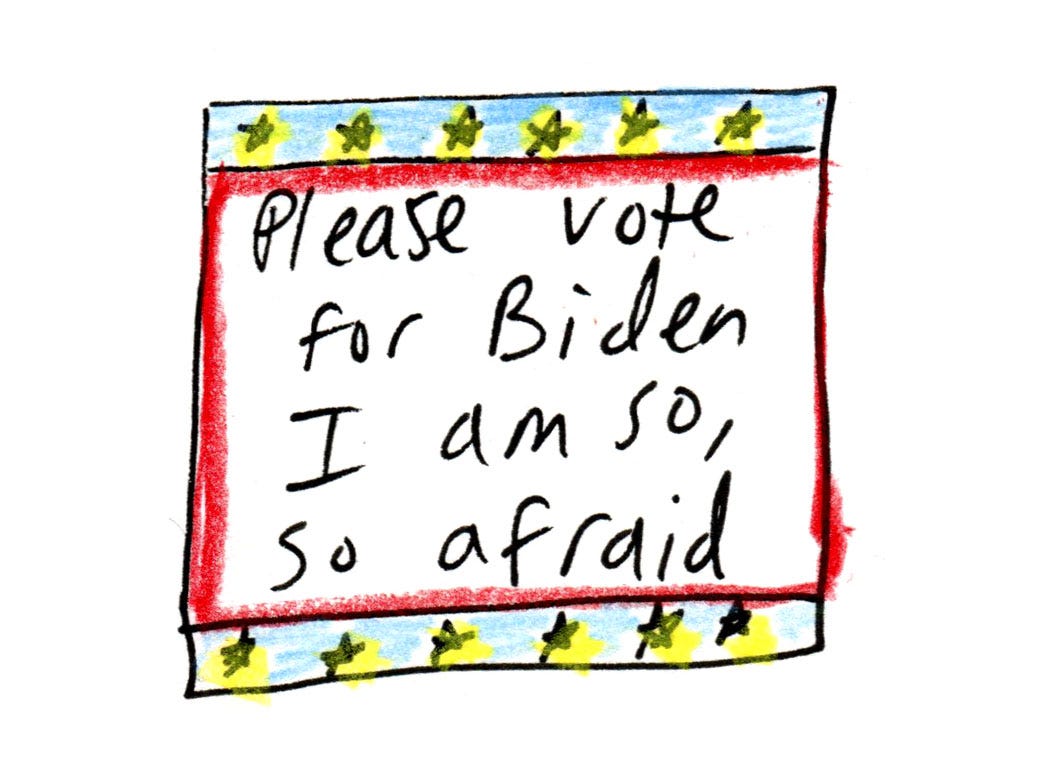 Please vote
for Biden
I am so,
so afraid